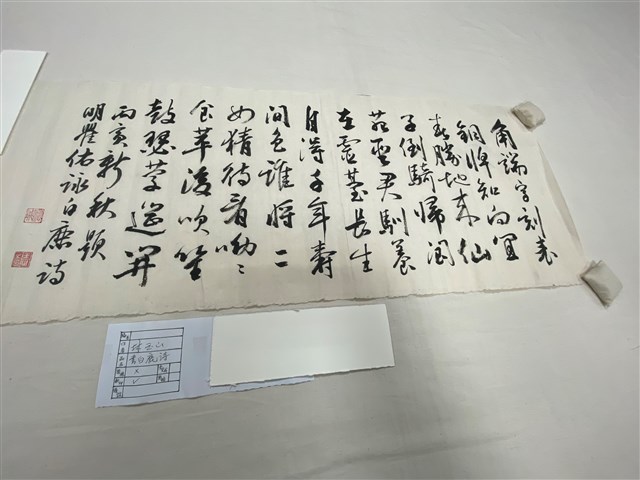 角端字刻表
銅牌知向宜
春勝地来仙
子倒騎歸閬
苑聖君馴養
在靈臺長生
自得千年壽
間色誰將二
女猜待看呦々
食苹後吹笙
鼓瑟筵開
亥新秋題
明豐佑詠白鹿詩
書白鹿詩